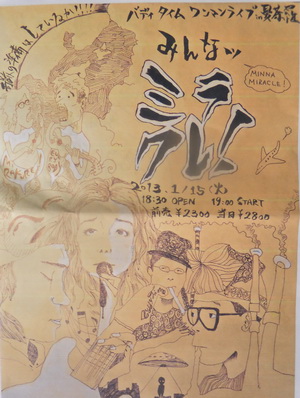 バディ タイム ワンマンライブ in
みんなッ
ミラ
クル!
MINNA
MIRACLE!
2013.1/15(火)
18:30 OPEN 19:00 START
前売 ¥2300 当日 ¥2800